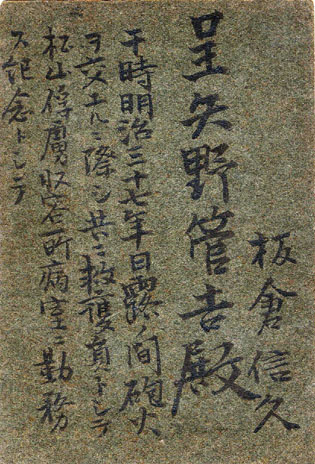 呈矢野管吉殿
板倉信久
干時明治三十七年日露ノ間砲火
ヲ交エルニ際シ共ニ救護員トシテ
松山俘虜収容所病室ニ勤務
ス記念トシテ